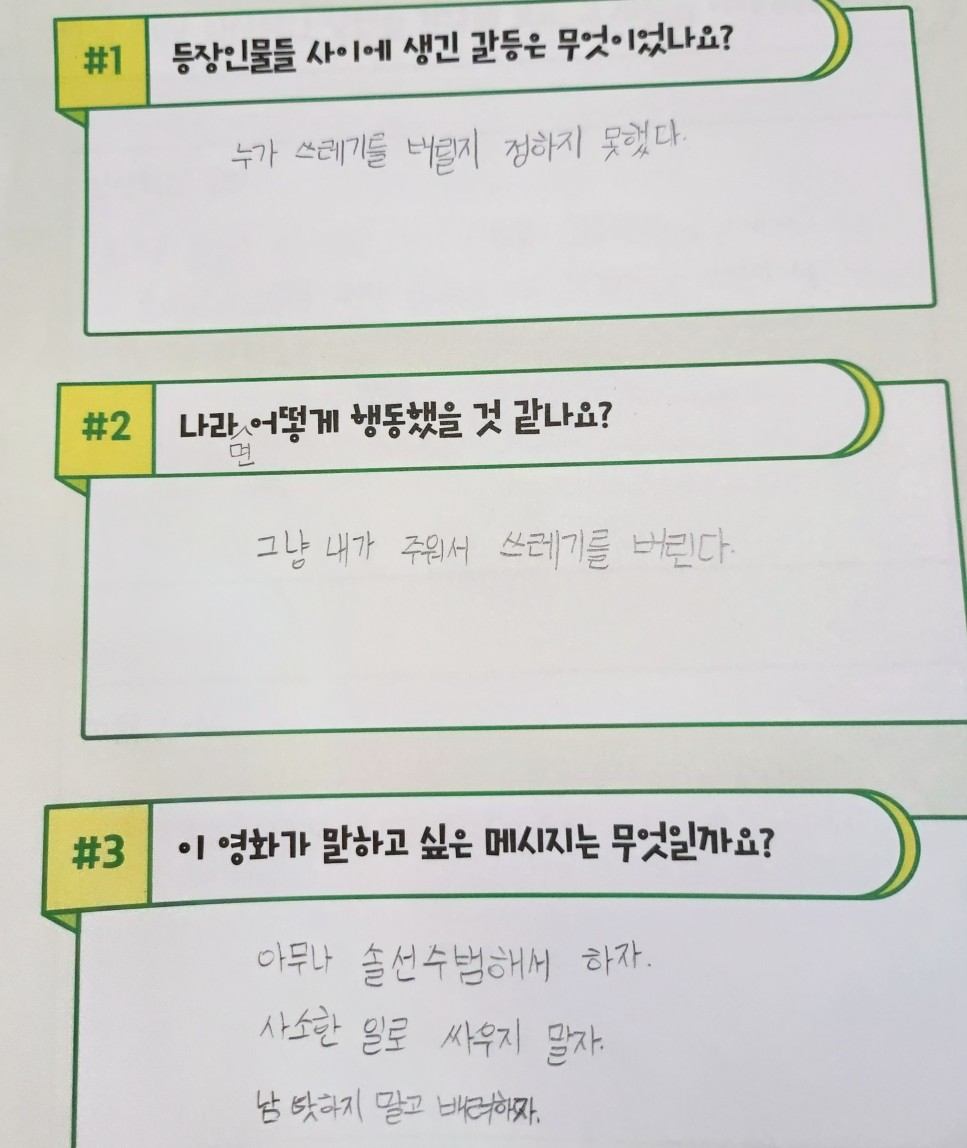 #1 등장인물들 사이에 생긴 갈등은 무엇이었나요?
누가 쓰레기를 버릴지 정하지 못했다.
#2 나라면 어떻게 행동했을 것 같나요?
그냥 내가 주워서 쓰레기를 버린다.
#3 이 영화가 말하고 싶은 메시지는 무엇일까요?
아무나 솔선수범해서 하자.
사소한 일로 싸우지 말자.
남 탓하지 말고 배려하자.